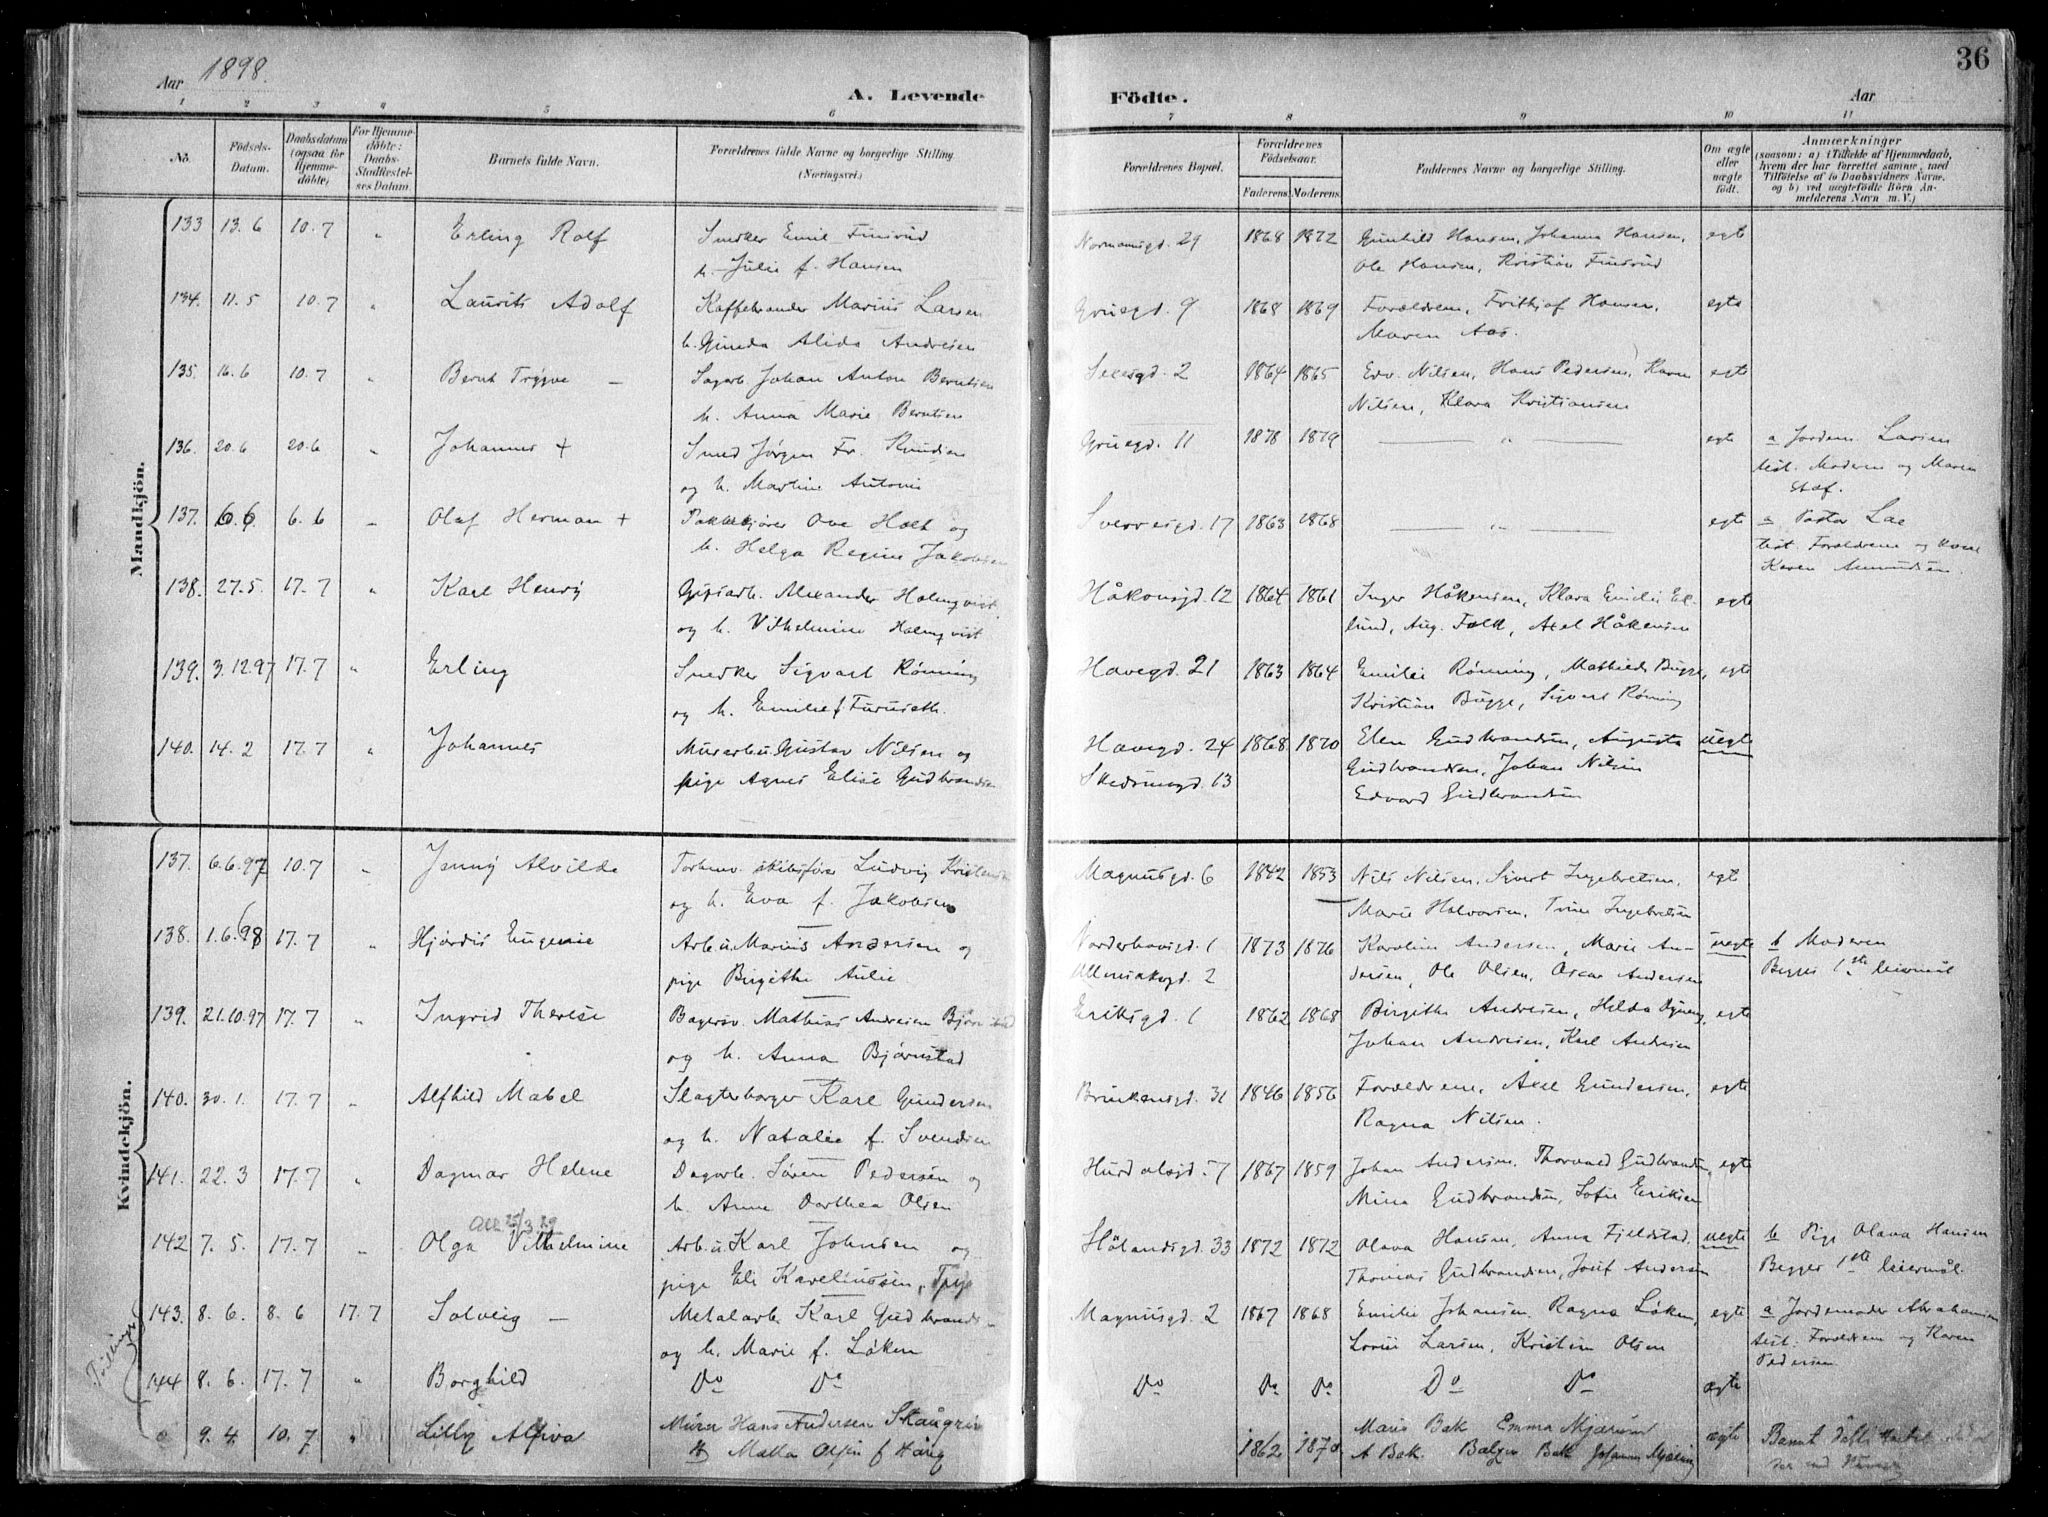 36
Aar 1898.
A. Levende Födte.
Aar
1 2 3 4 5 6 7 8 9 10 11
No.
Födsels-Datum.
Daabsdatum (ogsaa for Hjemmedöbte)
For Hjemmedöbte: Daabs-Stadfæstelses Datum.
Barnets fulde Navn.
Forældrenes fulde Navne og borgerlige Stilling (Næringsvei.)
Forældrenes Bopæl.
Forældrenes Födselsaar.
Faderens Moderens
Faddernes Navne og borgerlige Stilling.
Om ægte eller uægte födt.
Anmærkninger
(saasom: a) i Tilfælde af Hjemmedaab, hvem der har forrettet samme, med Tilföielse af to Daabsvidners Navne. og b) ved uægtefödte Börn Anmelderens Navn m. V.)
Mandkjön.
133 13.6 10.7 " Erling Rolf Snedker Emil Finsrud Normannsgd. 29 1868 1872 Gunhild Hansen, Johanna Hansen, egte
h. Julie f. Hansen Ole Hansen, Kristian Finsrud
134. 11.5 10.7 " Laurits Adolf Kaffebrænder Marius Larsen Gruegd. 9 1868 1869 Forældrene, Frithjof Hansen, egte
h. Gineda Alida Andresen Maren Aas.
135. 16.6 10.7 " Bernt Trygve – Sagarb. Johan Anton Berntsen Sexesgd. 2 1864 1865 Edv. Nilsen, Hans Pedersen, Karen egte
h. Anna Marie Berntsen Nilsen, Klara Kristiansen
136. 20.6 20.6 " Johannes + Smed Jørgen Fr. Knudsen Gruegd. 11 1878 1879 " egte a Jordem. Larsen
og h. Martine Antonie test. Moderen og Maren
137. 6.6 6.6 – Olaf Herman + Ove Holt og Sverresgd. 17 1863 1868 " egte a Pastor
h. Helga Regine Jakobsen test. Forældrene og
Karen Amundsen.
138. 27.5 17.7 " Karl Henry Gipsarb. Alexander Holmqvist Håkonsgd. 12 1864 1861 Inger Håkensen, Klara Emilie Ek- egte
og h. Vilhelmine Holmqvist lund, Aug. Falk, Axel Håkensen
139. 3.12.97 17.7 " Erling Snedker Sigvart Rønning Havegd. 21 1863 1864 Emilie Rønning, Mathilde Bugge, egte
og h. Emilie f Furuseth. Kristian Bugge, Sigvart Rønning
140. 14.2 17.7 " Johannes Murarb. u. Gustav Nilsen og Havegd. 24 1868 1870 Elen Gudbrandsen, Augusta uegte
pige Agnes Elise Gudbrandsen Skedsmogd. 13 Gudbrandsen, Johan Nilsen
Edvard Gudbrandsen
Kvindekjön.
137. 6.6.97 10.7 " Jenny Alvilde skibsfører Ludvig Kristensen Magnusgd. 6 1842 1853 Nils Nilsen, Sivert Ingebretsen, egte
og h. Eva f. Jakobsen Marie Halvorsen, Trine Ingebretsen
138. 1.6.98 17.7 " Hjørdis Eugenie Arb. u. Marius Andersen og Norderhovsgd. 1 1873 1876 Karoline Andersen, Marie An- uegte b Moderen
pige Birgithe Aulie Ullensakergd. 2 dersen, Ole Olsen, Oscar Andersen Begges 1ste leiermål
139. 21.10.97 17.7 " Ingrid Therese Bagersv. Mathias Andresen Bjørnstad Eriksgd. 1 1862 1868 Birgithe Andresen, Helda egte
og h. Anna Bjørnstad Johan Andresen, Karl Andresen
140. 30.1. 17.7 " Alfhild Mabel Slagterborger Karl Gundersen Brinkensgd. 31 1846 1856 Forældrene, Axel Gundersen, egte
og h. Natalie f. Svendsen Ragna Nilsen.
141. 22.3 17.7 " Dagmar Helene Dagarb. Søren Pedersen og Hurdalsgd. 7 1867 1859 Johan Andersen, Thorvald Gudbrandsen egte
h. Anne Dorthea Olsen Mina Gudbrandsen, Sofie Eriksen
Att. 25/3 29
142 7.5. 17.7 " Olga Vilhelmine Arb. u. Karl Johnsen og Hølandsgd. 33 1872 1872 Olava Hansen, Anna Fjeldstad, uegte b Pige Olava Hansen
pige Eli Karelinssen, Thomas Gudbrandsen, Josef Andersen Begges 1ste leiermål
143. 8.6. 8.6 17.7 Solveig – Metalarb. Karl Gudbrands- Magnusgd. 2 1867 1868 Emilie Johansen, Ragna Løken, egte a Jordemoder Abrahamsen
og h. Marie f. Løken Lovise Larsen, Kristine Olsen test. Forældrene og Karen
Pedersen
Tvillinger
144 8.6. 17.7 " Borghild Do Do Do Do Do Do Do ægte
9.4. 10.7 " Lilly Alfiva Murer Hans Andersen Skaugrin 1862 1870 Maria Bak Emma Mjærum ægte
H Matha Olsen f Haug A Bak. Balzer Bak Johannes